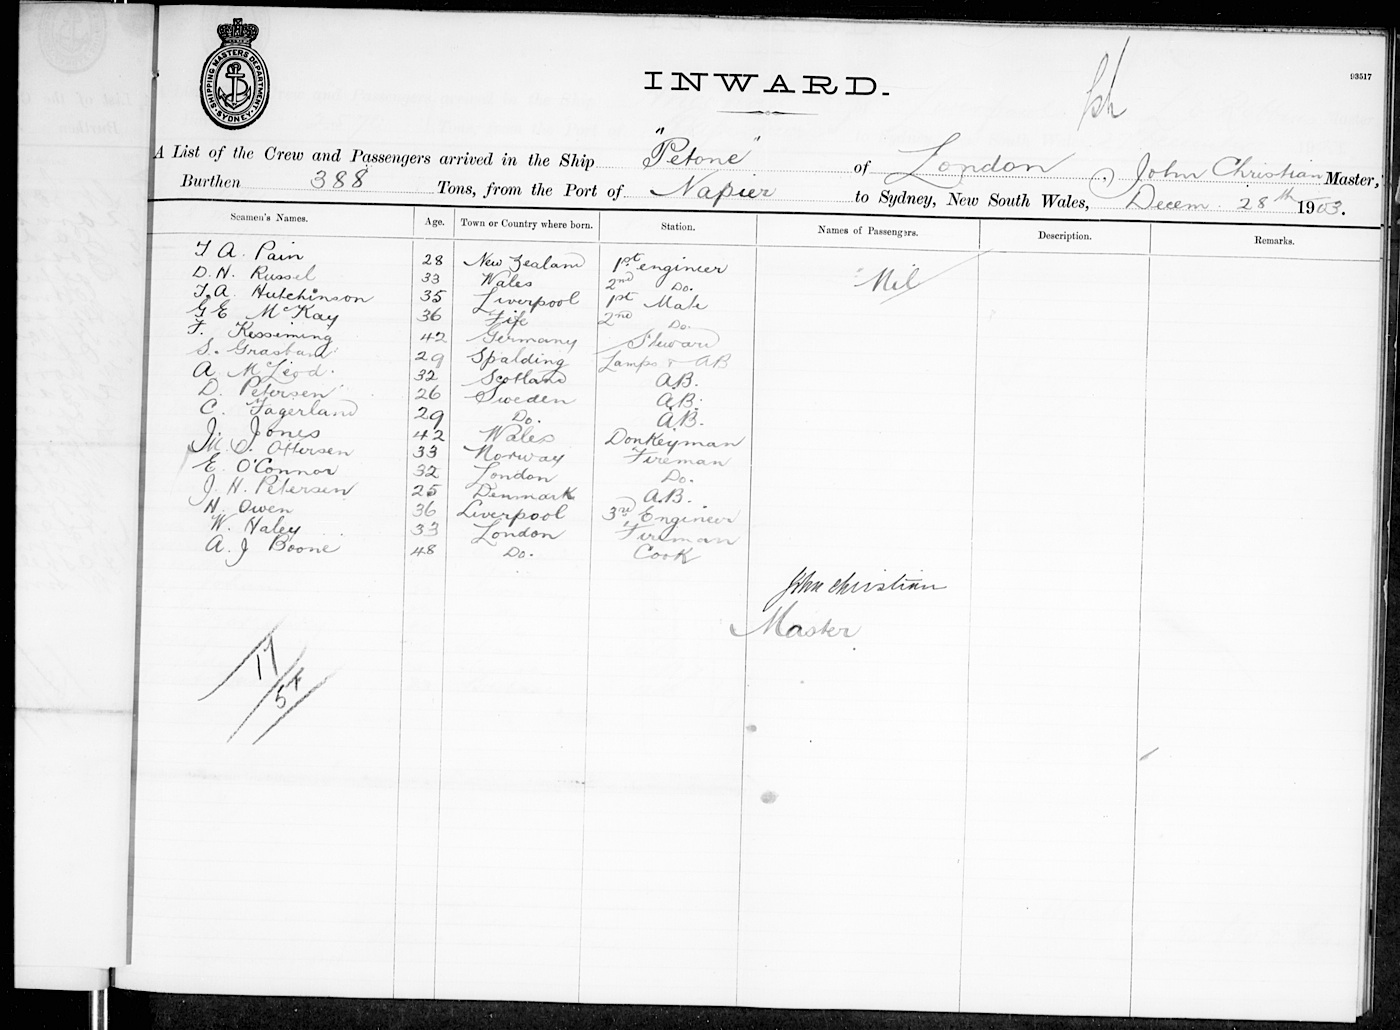 SHIPPING MASTERS DEPARTMENT
SYDNEY
INWARD.
93517
A List of the Crew and Passengers arrived in the Ship "Petone" of London, John Christian Master,
Burthen 388 Tons, from the Port of Napier to Sydney, New South Wales, Decem. 28th 1903.
Seamen's Names. Age. Town or Country where born. Station. Names of Passengers. Description. Remarks.
T A. Pain 28 New Zealand 1st engineer Nil
D. N. Russel 33 Wales 2nd Do.
T. A. Hutchinson 35 Liverpool 1st Mate
G E McKay 36 Fife 2nd Do.
F. 42 Germany Steward
S. 29 Spalding Lamps & AB
A McLeod. 32 Scotland A.B.
D. Petersen 26 Sweden A.B.
C. Fagerland 29 Do. A.B.
J. Jones 42 Wales Donkeyman
M. S. Ottersen 33 Norway Fireman
E. O'Connor 32 London Do.
J. H. Petersen 25 Denmark A.B.
H. Owen 36 Liverpool 3rd Engineer
W. Haley 33 London Fireman
A. J Boone 48 Do. Cook
John Christian
Master
17
54